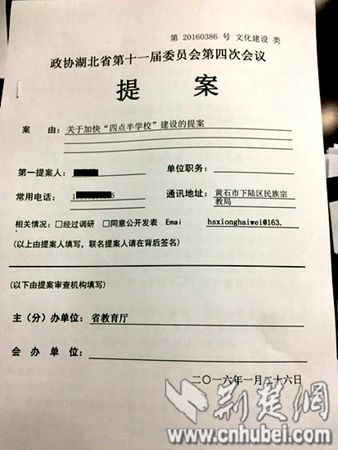 第 20160386 号 文化建设 类
政协湖北省第十一届委员会第四次会议
提 案
案 由：关于加快“四点半学校”建设的提案
第一提案人： 单位职务：
常用电话： 通讯地址：黄石市下陆区民族宗
教局
相关情况：□已经过调研 □同意公开发表 Emai hsxionghaiwei@163.
(以上由提案人填写，联名提案人请在背后签名)
(以下由提案审查机构填写)
主（分）办单位：省教育厅
会 办 单 位：
二〇一六年一月二十六日
荆楚网
www.cnhubei.com